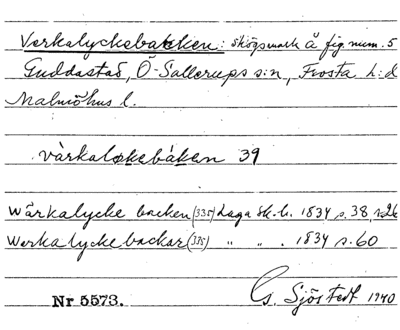 Verkalycksbacken: skogsmark å fig.num. 5
Guddastad, Ö-Sallerups s:n, Frosta h:d
Malmöhus l.
vàrkalokebáken 39
Wärkalycke backen (335) Laga sk.h. 1834 s. 38, s. 26
Werkalyckebackar (335) " " . 1834 s. 60
Nr 5573.
G. Sjöstedt 1940